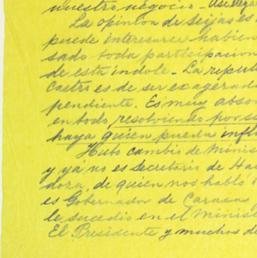 nuestro negocio.-
La opinion de Seijas es
puede interesarse habien
sado toda participacion
de esta indole.- La reput
Castro es de ser exagerada
pendiente. Es muy abso
en todo, resolviendo por su
haya quien pueda infl
Hubo cambio de Minis
y ya no es Secretario de Ha
dora, de quien nos habló
es Gobernador de Caracas
le sucedio en el Minist
El Presidente y muchos de